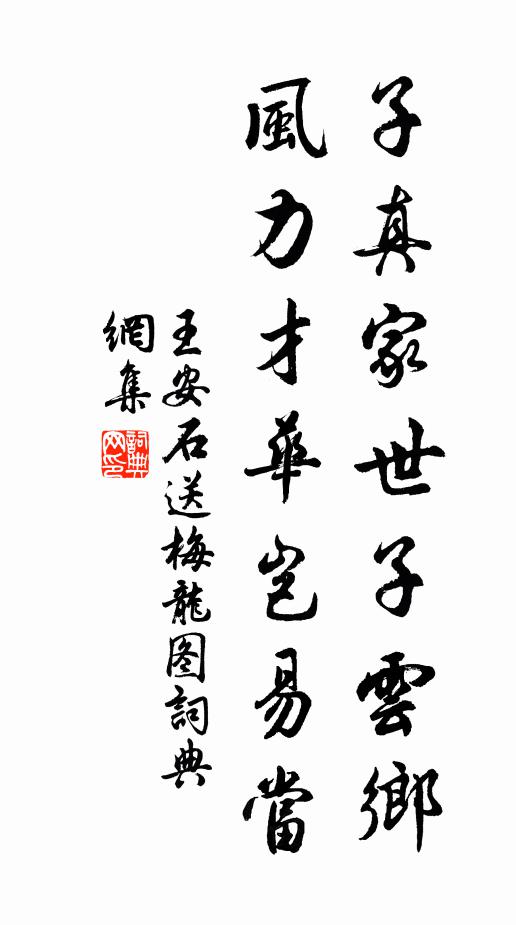 子真家世子雲鄉
風力才華豈易當
王安石送梅龍图詞典
網集
詞典网印